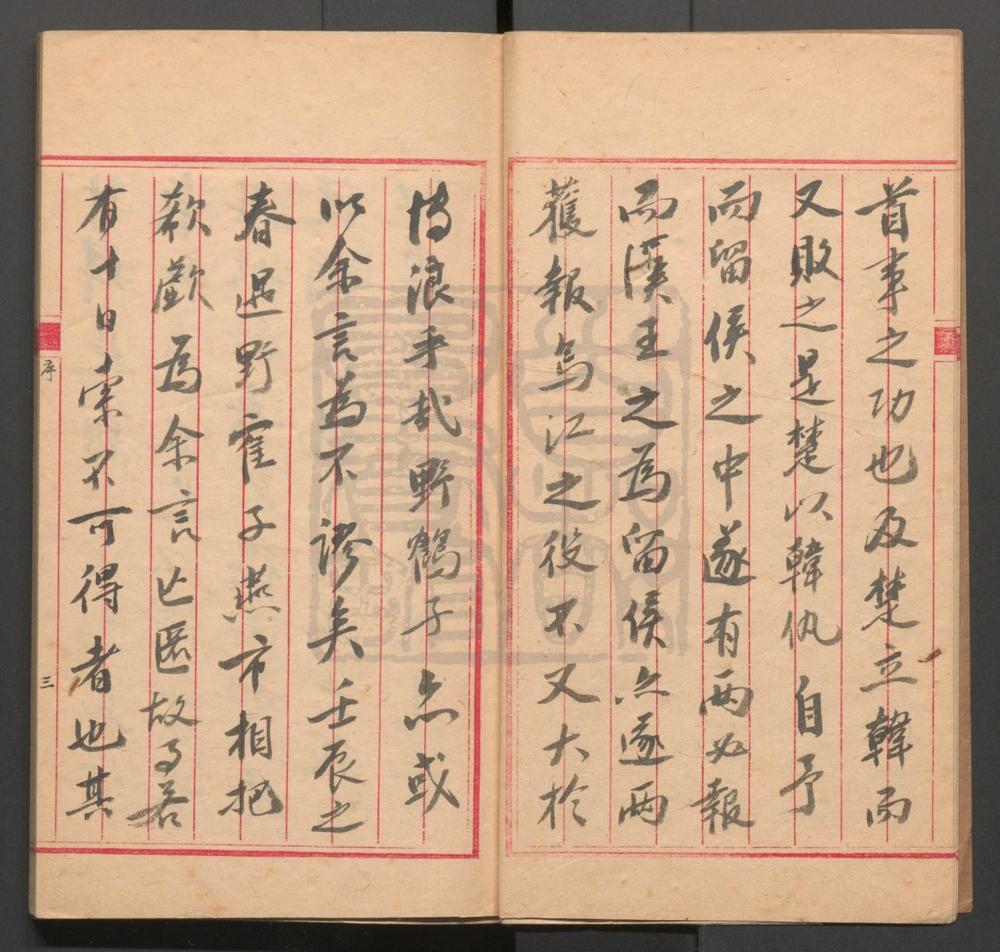 首事之功也及楚立韓而
又敗之是楚以韓仇自予
而留侯之中遂有兩必報
而漢王之為留侯亦遂兩
獲報烏江之役不又大於
博浪乎哉野鶴子亦或
以余言為不謬矣壬辰之
春遇野寉子燕市相把
欷歔為余言亡匿故事若
有十日索不可得者也其
序
三